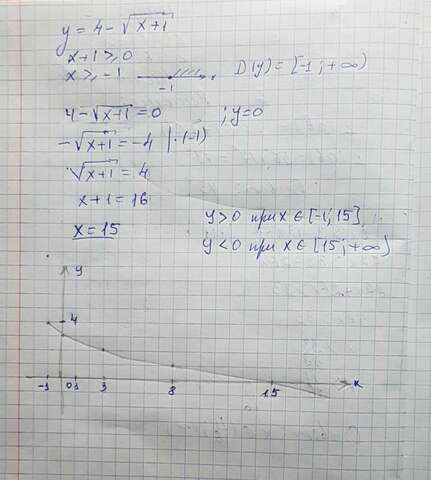 y = 4 - √(x+1)
x+1 ≥ 0
x ≥ -1
-1
D(y) = [-1; +∞)
4 - √(x+1) = 0 ; y=0
-√(x+1) = -4 | ·(-1)
√(x+1) = 4
x+1 = 16
x = 15
y > 0 при x ∈ [-1; 15]
y < 0 при x ∈ [15; +∞)
y
4
-1 0 1 3 8 15 x